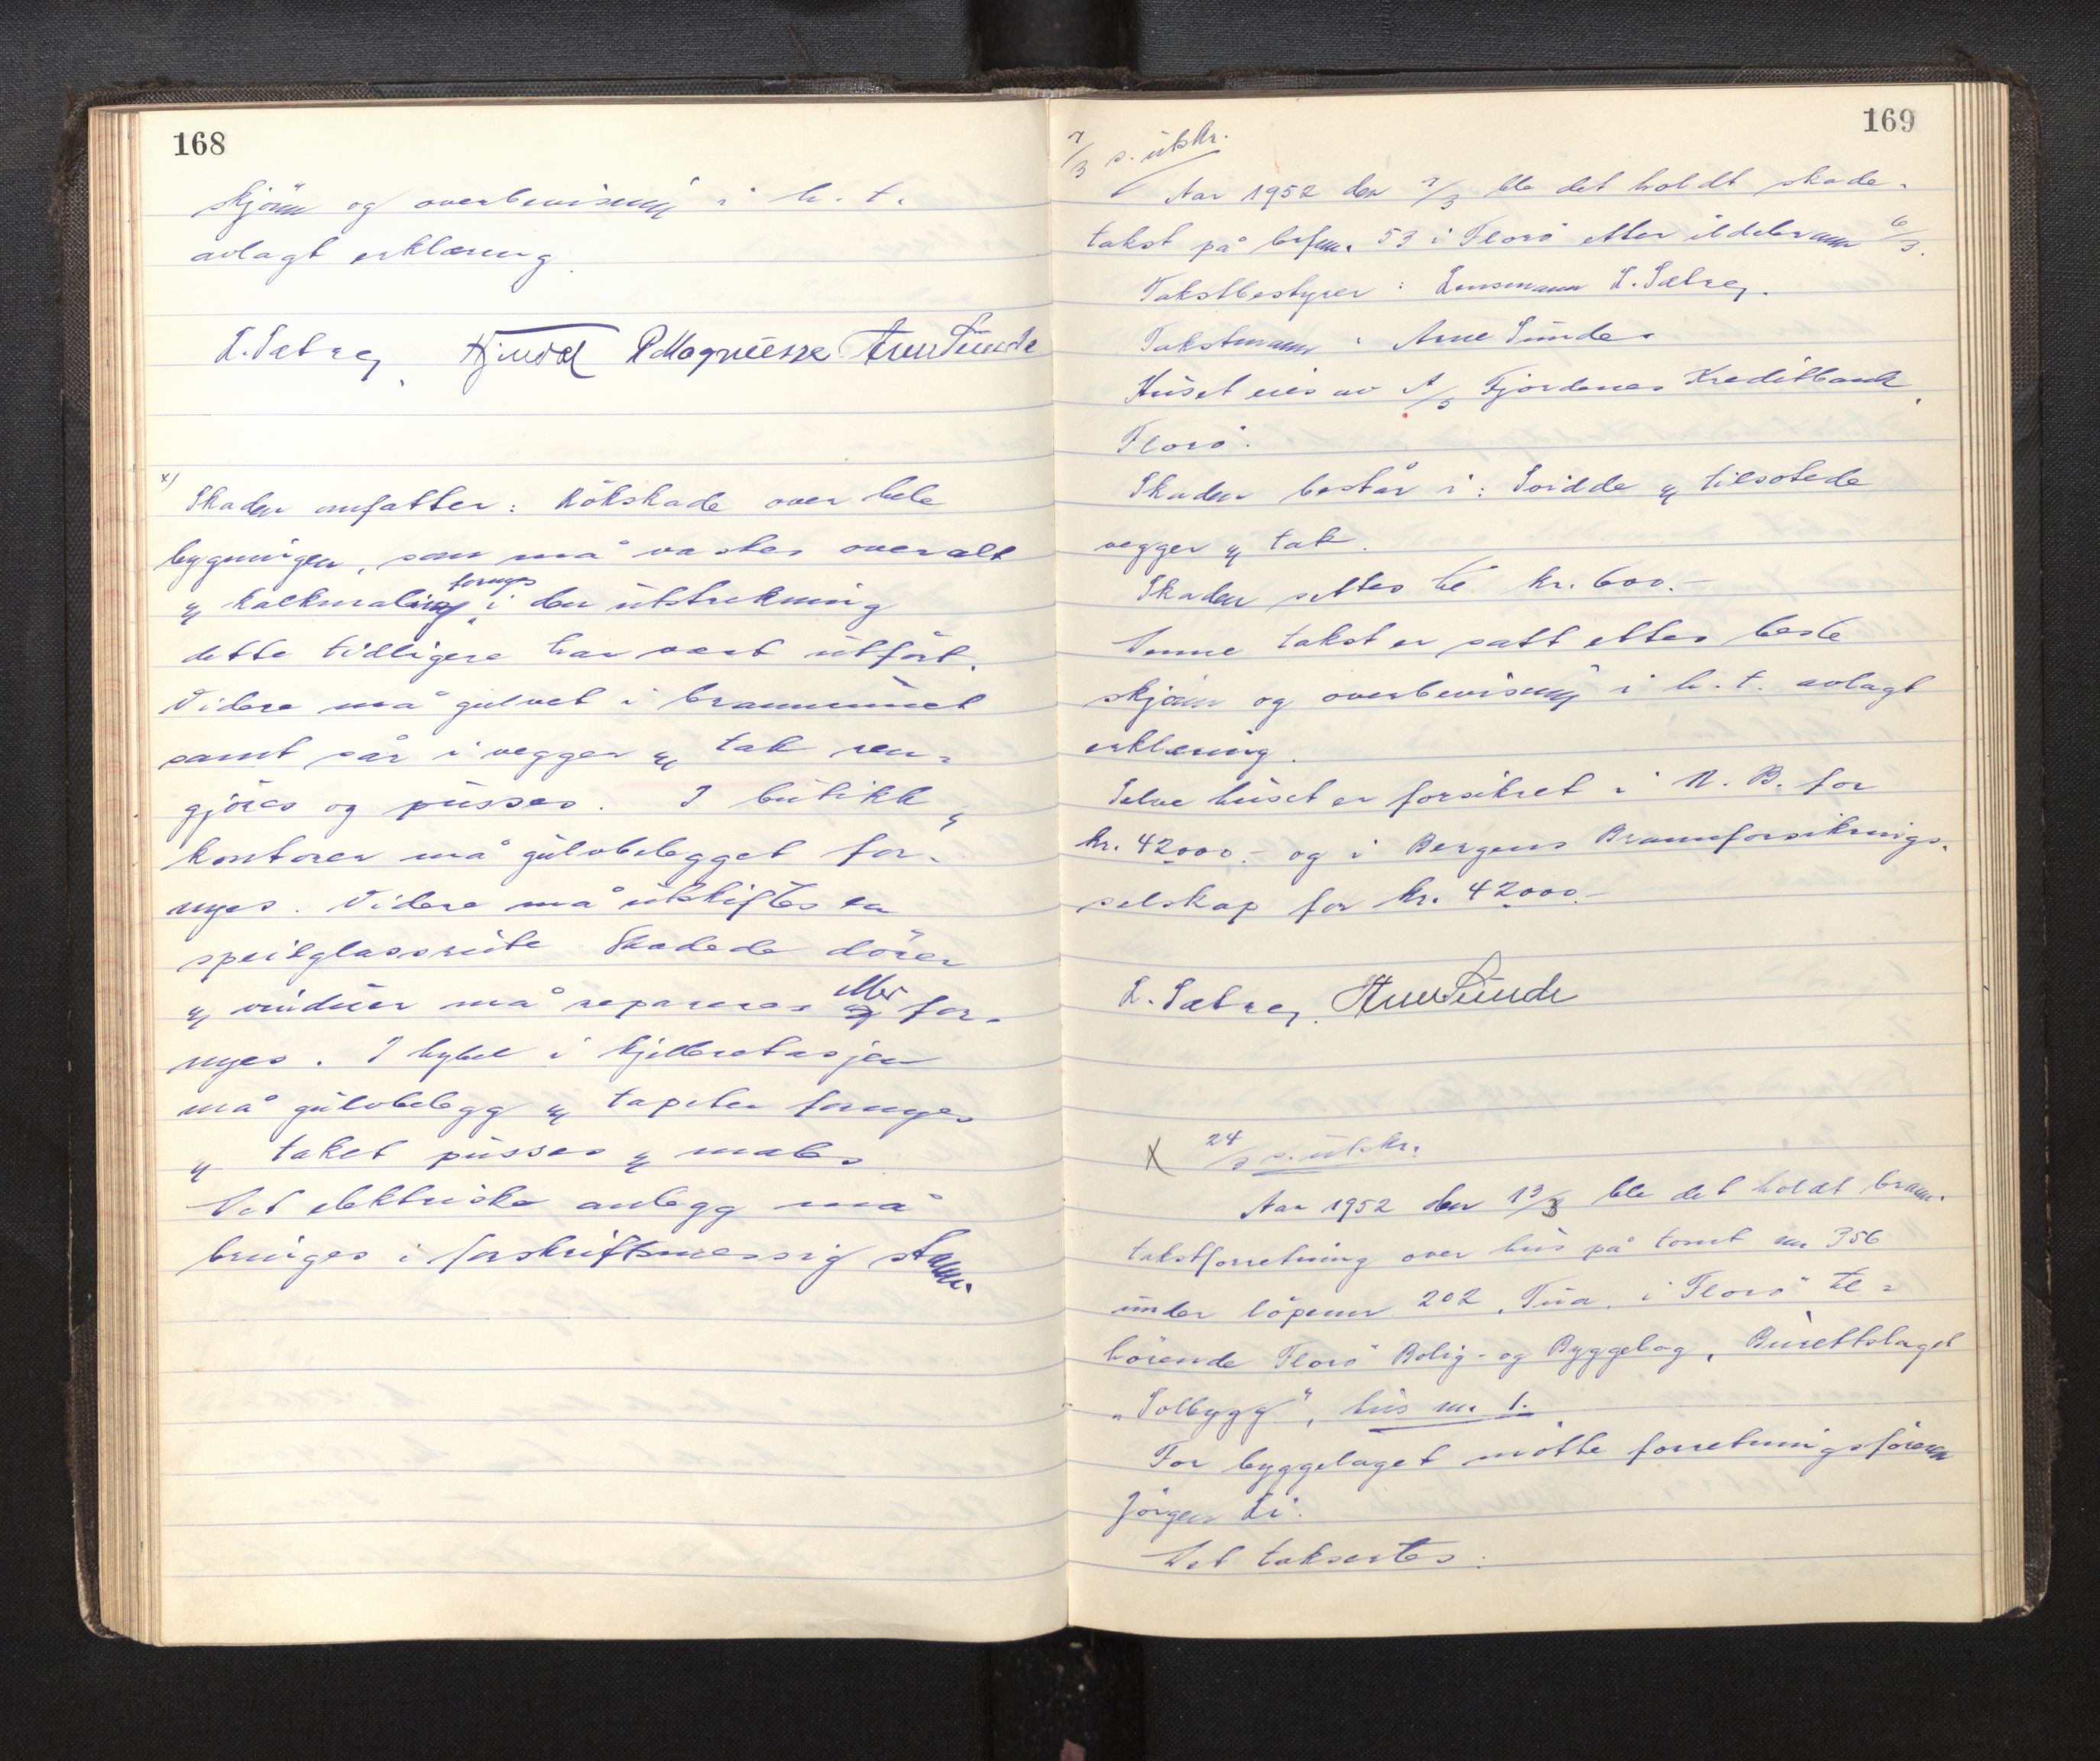 168
skjønn og overbevisning i h. t.
avlagt erklæring.
L. Sætre, Hjendal P Magnussen Arne Sunde
x) Skaden omfatter: Rökskade over hele
bygningen, som må vaskes overalt
og kalkmaling fornyes i den utstrekning
dette tidligere har vært utfört.
Videre må gulvet i brannrummet
samt sår i vegger og tak ren-
gjöres og pusses. I butikk og
kontorer må gulvbelegget for-
nyes. Videre må utskiftes en
speilglassrute. Skadede dörer
og vinduer må repareres eller for-
nyes. I hybel i kjelleretasjen
må gulvbelegg og tapeter fornyes
og taket pusses og males.
Det elektriske anlegg må
bringes i forskriftsmessig stann.
169
7/3 s. utskr.
Aar 1952 den 7/3 ble det holdt skade-
takst på brfnr. 53 i Florö etter ildebrann 6/3.
Takstbestyrer: Lensmann L. Sætre,
Takstmann: Arne Sunde.
Huset eies av A/S Fjordenes Kreditbank,
Florö.
Skaden består i: Svidde og tilsotede
vegger og tak.
Skaden settes til kr. 600.-
Denne takst er satt etter beste
skjönn og overbevisning i h. t. avlagt
erklæring.
Selve huset er forsikret i N. B. for
kr. 42000.- og i Bergens Brannforsikrings-
selskap for kr. 42000.-
L. Sætre, Arne Sunde
X 24/3 s. utskr.
Aar 1952 den 13/3 ble det holdt brann-
takstforretning over hus på tomt nr 356
under löpenr 202, Tua, i Florö til-
hörende Florö Bolig- og Byggelag, Burettslaget
"Solbygg", hus nr. 1.
For byggelaget mötte forretningsföreren
Jörgen Li.
Det taksertes: